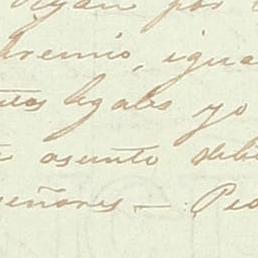 por
premio, igua
tos legales yo
asunto debi
señores — Pe